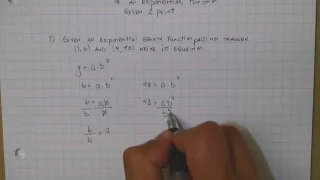 an exponential function
Given 2 point
1) Given an exponential growth function passing through
(1, 6) and (4, 48) write it equation
y = a · bˣ
6 = a · b¹ 48 = a · b⁴
6/b = ab/b 48/b⁴ = ab⁴/b⁴
6/b = a